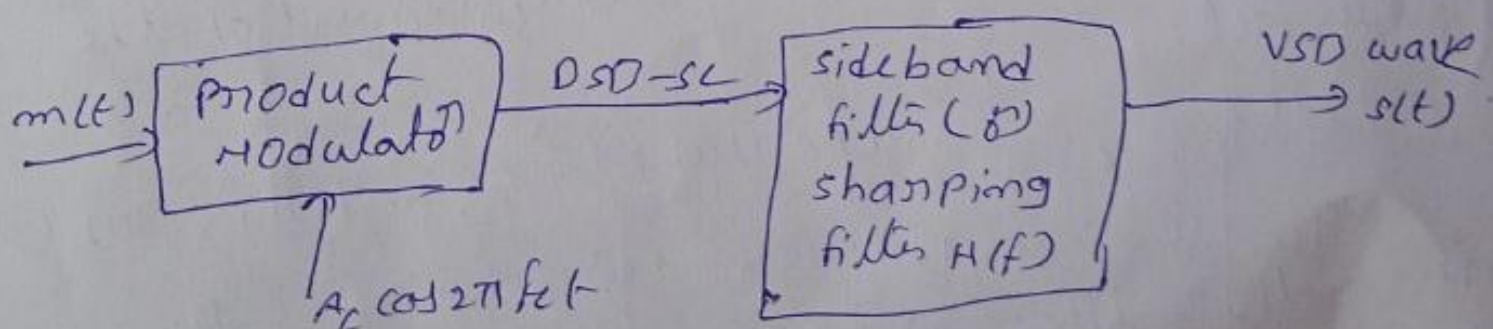 m(t)
product
Modulator
Ac cos 2π fct
DSB-SC
sideband
filter (or)
sharping
filter H(f)
VSB wave
s(t)